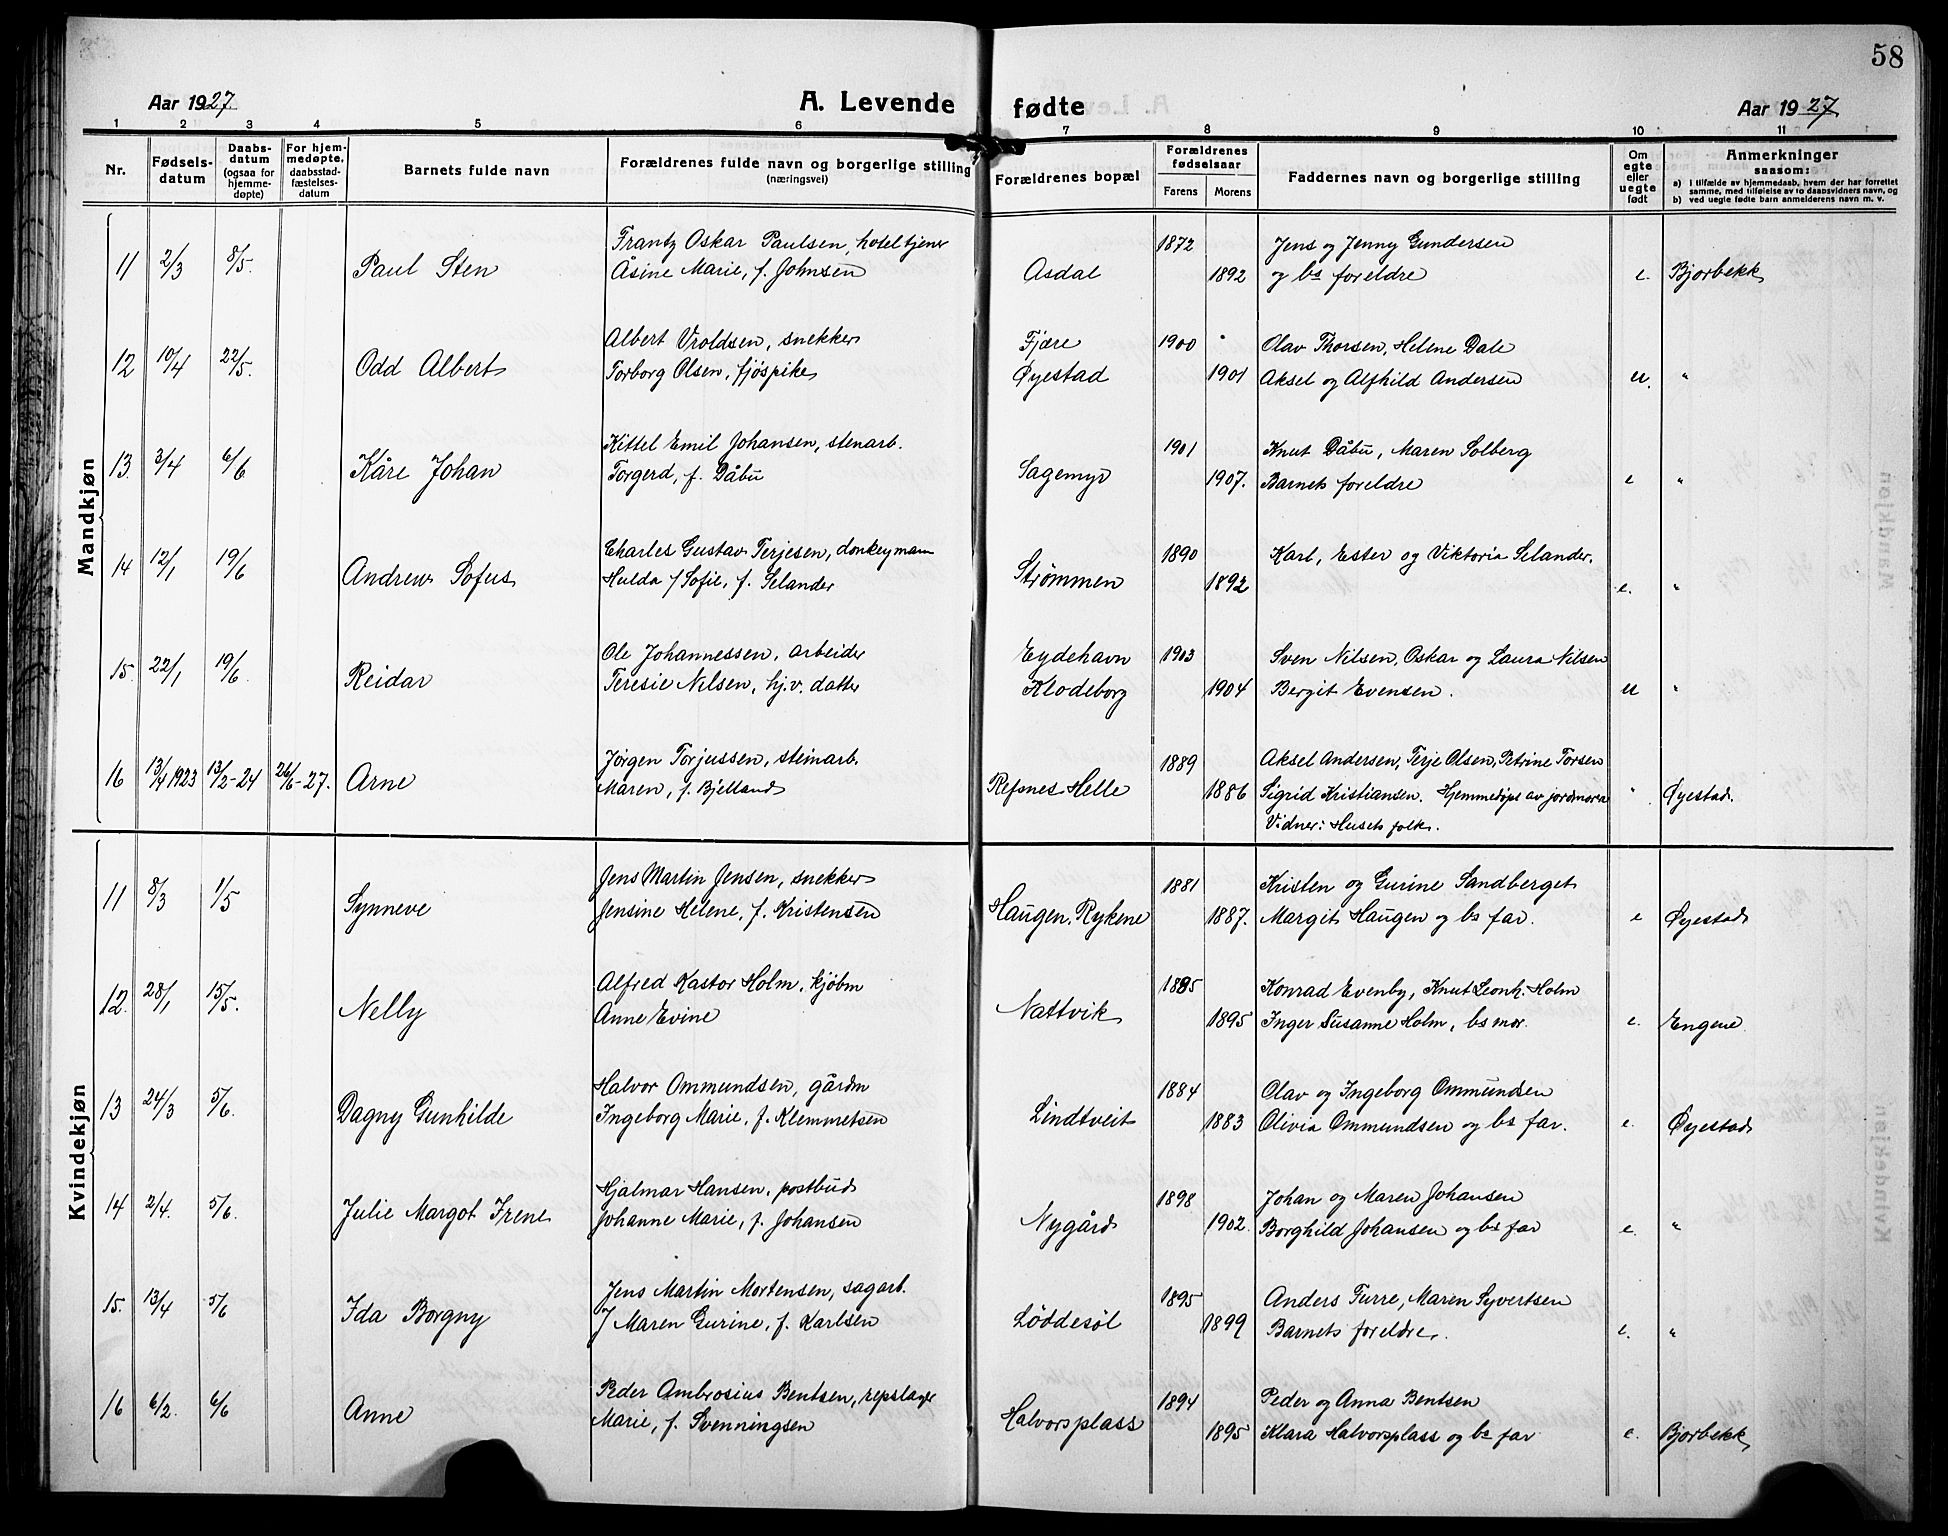 58
Aar 1927. A. Levende fødte Aar 1927
1 2 3 4 5 6 7 8 9 10 11
Nr. Fødselsdatum Daabsdatum (ogsaa for hjemmedøpte) For hjemmedøpte, daabsstadfæstelsesdatum Barnets fulde navn Forældrenes fulde navn og borgerlige stilling (næringsvei) Forældrenes bopæl Forældrenes fødselsaar Farens Morens Faddernes navn og borgerlige stilling Om egte eller uegte født Anmerkninger saasom: a) I tilfælde av hjemmedaab, hvem der har forrettet samme, med tilføielse av to daabsvidners navn, og b) ved uegte fødte barn anmelderens navn m. v.
Mandkjøn
11 2/3 8/5. Paul Sten Frantz Oskar Paulsen, hoteltjener 1872 Jens og Jenny Gundersen
Åsine Marie, f. Johnsen Asdal 1892 og bs foreldre e. Bjorbekk
12 10/4 22/5. Odd Albert Albert Vroldsen, snekker Fjære 1900 Olav Thorsen, Helene Dale
Torborg Olsen, fjøspike Øyestad 1901 Aksel og Alfhild Andersen u. "
13. 3/4 6/6 Kåre Johan Kittel Emil Johansen, stenarb. 1901 Knut Dåbu, Maren Solberg
Torgerd, f. Dåbu Sagemyr 1907. Barnets foreldre e "
14 12/1 19/6 Andrew Sofus Charles Gustav Terjesen, donkeyman 1890 Karl, Ester og Viktoria Selander.
Hulda Sofie, f. Selander Strømmen 1892 e. "
15. 22/1 19/6 Reidar Ole Johannessen, arbeider Eydehavn 1903 Sven Nilsen, Oskar og Laura Nilsen
Teresie Nilsen, hj.v. datter Klodeborg 1904 Bergit Evensen. u "
16 13/4 1923 13/2-24 26/6-27. Arne Jörgen Torjussen, steinarb. 1889 Aksel Andersen, Terje Olsen, Petrine Torsen
Maren, f. Bjelland Refsnes Helle 1886 Sigrid Kristiansen. Hjemmedöpt av jordmora " Øyestad.
Vidner: Husets folk.
Kvindekjøn
11 8/3 1/5 Synneve Jens Martin Jensen, snekker 1881 Kristen og Gurine Sandberget
Jensine Helene, f. Kristensen Haugen. Rykene 1887. Margit Haugen og bs far. e Øyestad
12. 28/1 15/5. Nelly Alfred Kastor Holm, kjöbm 1885 Konrad Evenby, Knut Leonh. Holm
Anne Evine Nattvik 1895 Inger Susanne Holm, bs mor. e. Engene
13 24/3 5/6. Dagny Gunhilde Halvor Ommundsen, gårdm 1884 Olav og Ingeborg Ommundsen
Ingeborg Marie, f. Klemmetsen Lindtveit 1883 Olivia Ommundsen og bs far. e. Øyestad
14 2/4. 5/6. Julie Margot Irene Hjalmar Hansen, postbud 1898 Johan og Maren Johansen
Johanne Marie, f. Johansen Nygård 1902. Borghild Johansen og bs far e. "
15. 13/4 5/6 Ida Borgny Jens Martin Mortensen, sagarb. 1895 Anders Furre, Maren Syvertsen
Maren Gurine, f. Karlsen Löddesöl 1899 Barnets foreldre. e. "
16 6/2. 6/6 Anne Peder Ambrosius Bentsen, repslager 1894 Peder og Anna Bentsen
Marie, f. Svenningsen Halvorsplass 1895 Klara Halvorsplass og bs far e. Bjorbekk